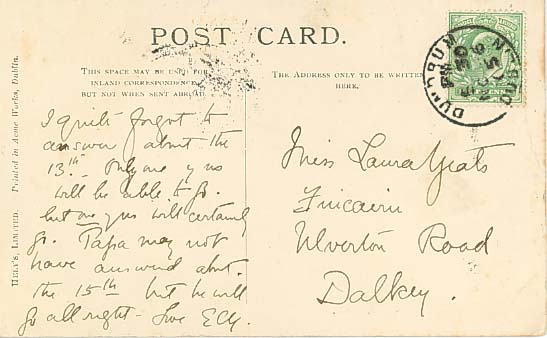 POST CARD.
THIS SPACE MAY BE USED FOR
INLAND CORRESPONDENCE
BUT NOT WHEN SENT ABROAD
THE ADDRESS ONLY TO BE WRITTEN
HERE.
HELY'S, LIMITED. Printed in Acme Works, Dublin.
I quite forgot to
answer about the
13th. Only one of us
will be able to go.
but one of us will certainly
go. Papa may not
have answered about
the 15th but he will
go all right - love ECY.
Miss Laura Yeats
Fincairn
Ulverton Road
Dalkey.
DUNDRUM
DUBLIN